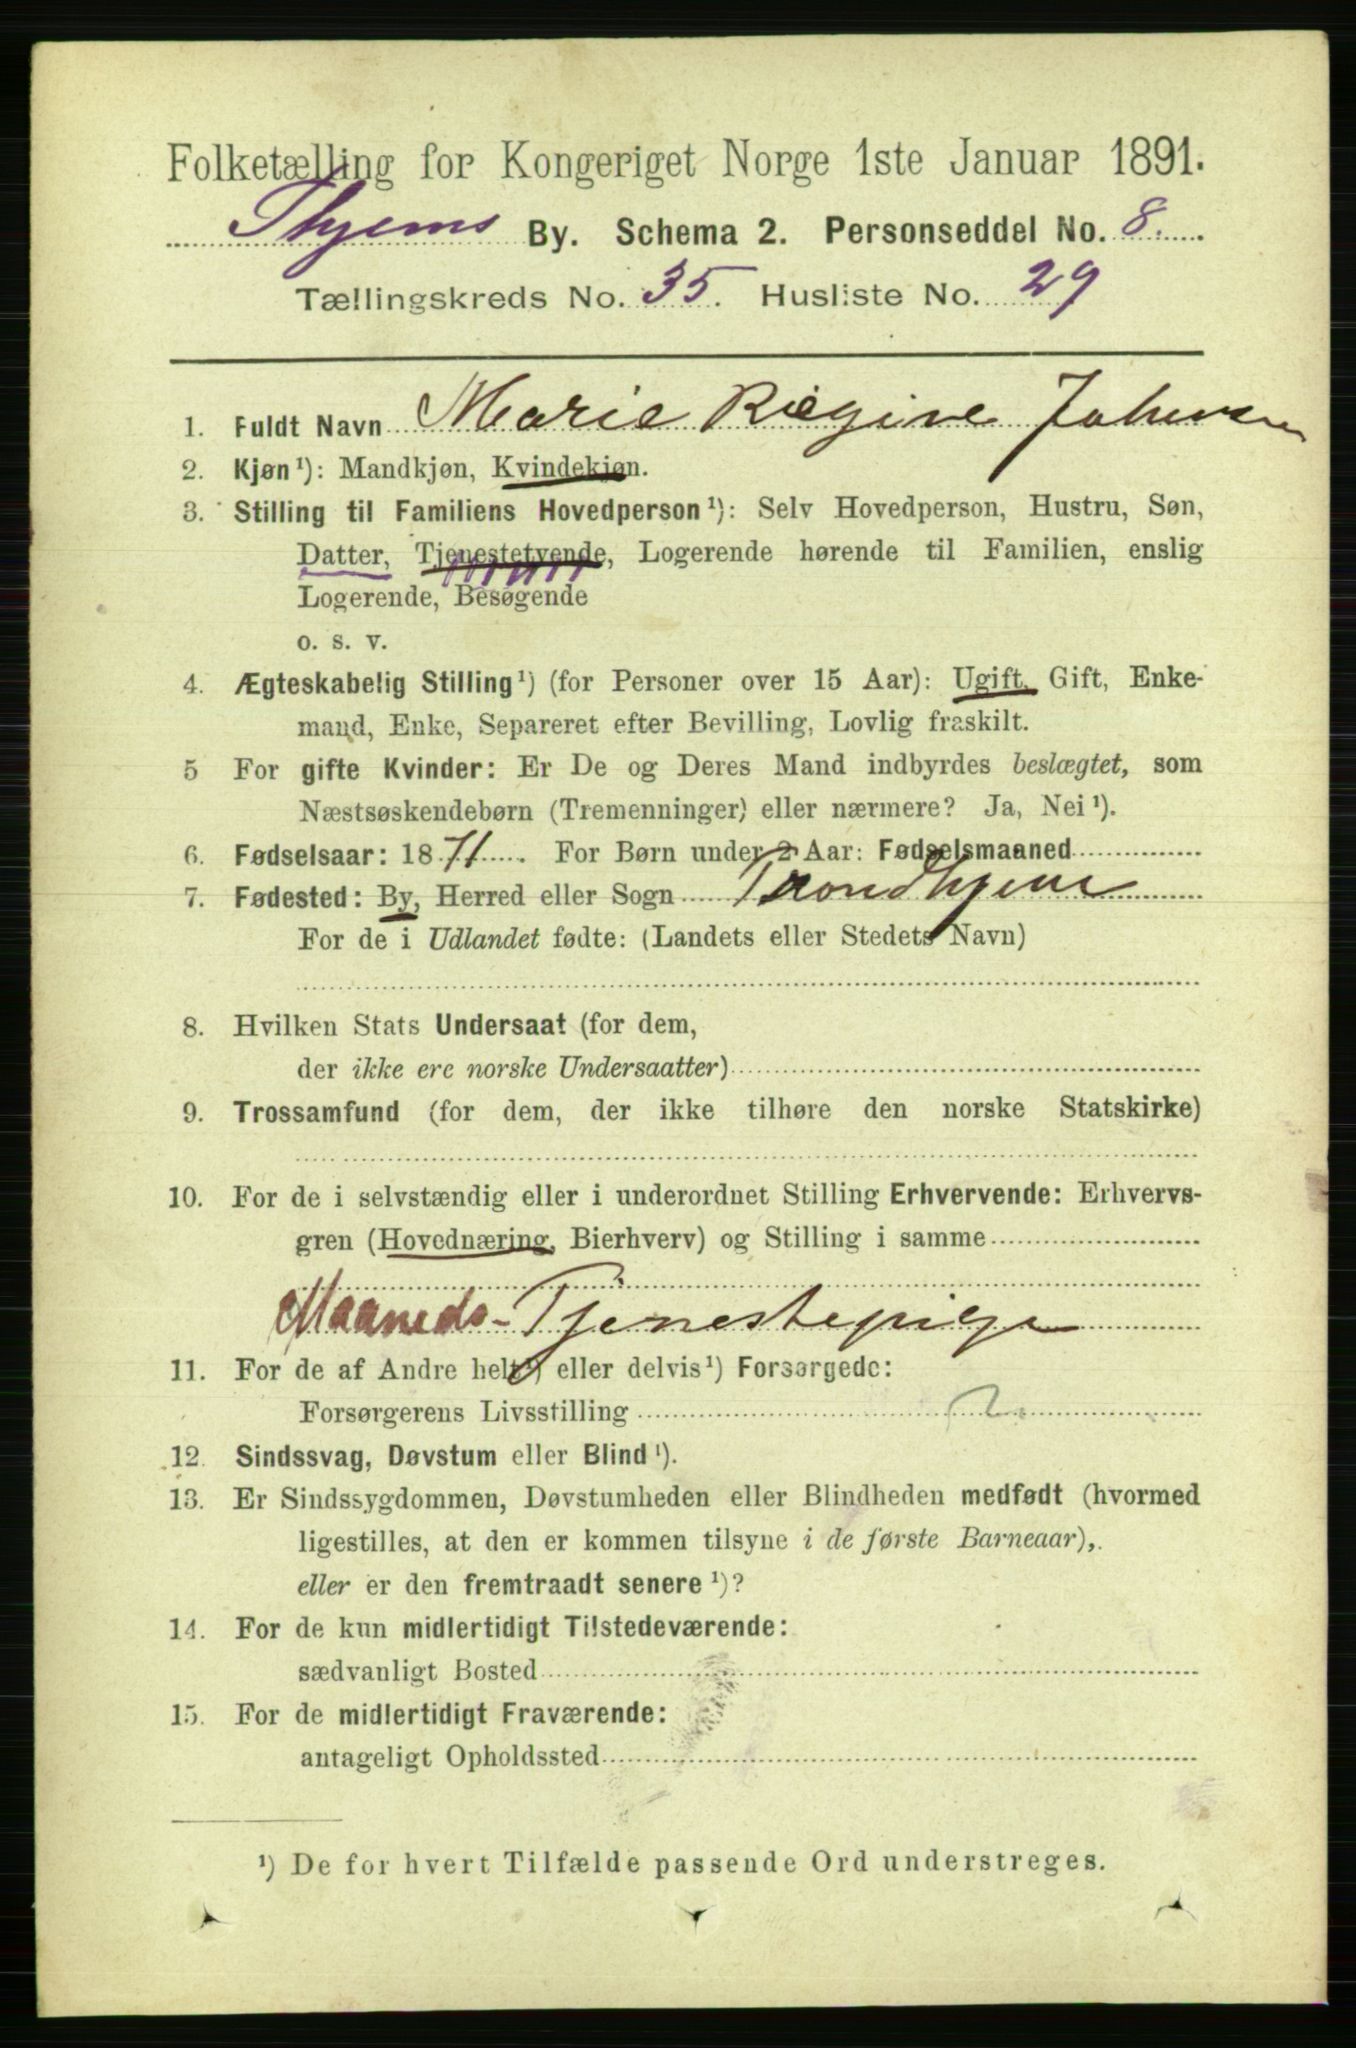 Folketælling for Kongeriget Norge 1ste Januar 1891.
Thjems By. Schema 2. Personseddel No. 8.
Tællingskreds No. 35. Husliste No. 29
1. Fuldt Navn Marie Regine Johnsen
2. Kjøn¹): Mandkjøn, Kvindekjøn.
3. Stilling til Familiens Hovedperson¹): Selv Hovedperson, Hustru, Søn,
Datter, Tjenestetyende, Logerende hørende til Familien, enslig
Logerende, Besøgende
o. s. v.
4. Ægteskabelig Stilling¹) (for Personer over 15 Aar): Ugift, Gift, Enke-
mand, Enke, Separeret efter Bevilling, Lovlig fraskilt.
5 For gifte Kvinder: Er De og Deres Mand indbyrdes beslægtet, som
Næstsøskendebørn (Tremenninger) eller nærmere? Ja, Nei¹).
6. Fødselsaar: 1871. For Børn under 2 Aar: Fødselsmaaned
7. Fødested: By, Herred eller Sogn Trondhjem
For de i Udlandet fødte: (Landets eller Stedets Navn)
8. Hvilken Stats Undersaat (for dem,
der ikke ere norske Undersaatter)
9. Trossamfund (for dem, der ikke tilhøre den norske Statskirke)
10. For de i selvstændig eller i underordnet Stilling Erhvervende: Erhvervs-
gren (Hovednæring, Bierhverv) og Stilling i samme
Maaneds-Tjenestepige
11. For de af Andre helt¹) eller delvis¹) Forsørgede:
Forsørgerens Livsstilling 2.
12. Sindssvag, Døvstum eller Blind¹).
13. Er Sindssygdommen, Døvstumheden eller Blindheden medfødt (hvormed
ligestilles, at den er kommen tilsyne i de første Barneaar),
eller er den fremtraadt senere¹)?
14. For de kun midlertidigt Tilstedeværende:
sædvanligt Bosted
15. For de midlertidigt Fraværende:
antageligt Opholdssted
¹) De for hvert Tilfælde passende Ord understreges.